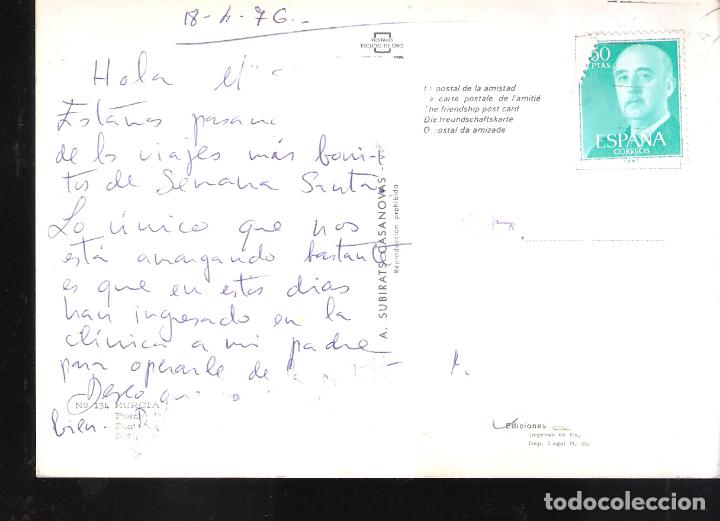 18-4-76.-
Hola
Estamos
de los viajes más boni-
tos de Semana Santa
Lo único que nos
está amargando bastante
es que en estos días
han ingresado en la
clínica a mi padre
para operarle de la
Deseo que
bien.
Nº 134 MURCIA
POSTALES
ESCUDO DE ORO
La postal de la amistad
La carte postale de l'amitié
The friendship post card
Die Freundschaftskarte
O postal da amizade
A. SUBIRATS CASANOVAS
Reproducción prohibida
50
PTAS
ESPAÑA
CORREOS
Ediciones
Dep. Legal B.
todocoleccion
todocoleccion.net